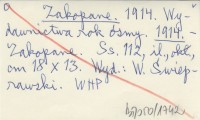 Zakopane. 1914. Wy-
dawnictwa rok ósmy. 1914. -
Zakopane. Ss. 112, il., okł.,
cm 18 X 13. Wyd.: W. Świep-
rawski. WHP